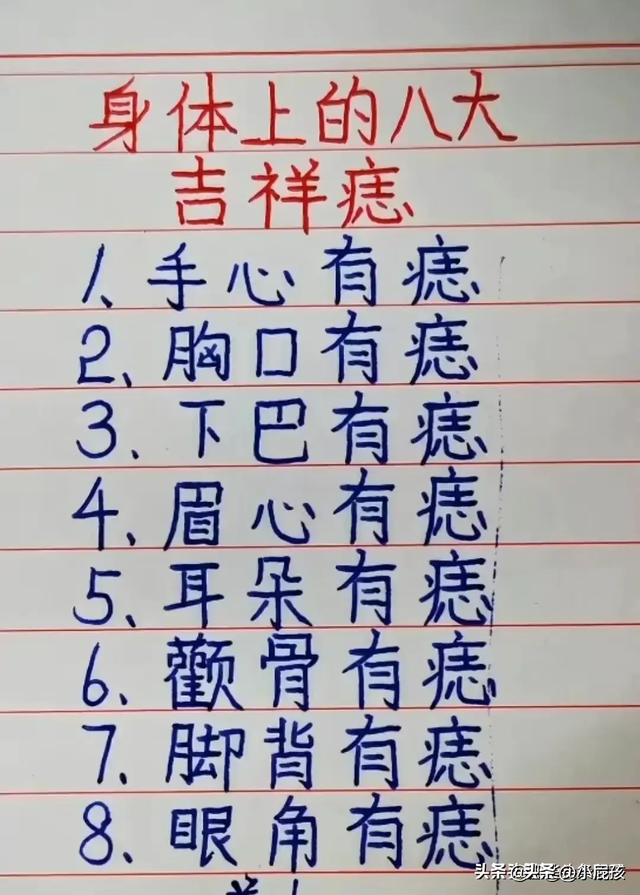 身体上的八大
吉祥痣
1、手心有痣
2、胸口有痣
3、下巴有痣
4、眉心有痣
5、耳朵有痣
6、颧骨有痣
7、脚背有痣
8、眼角有痣